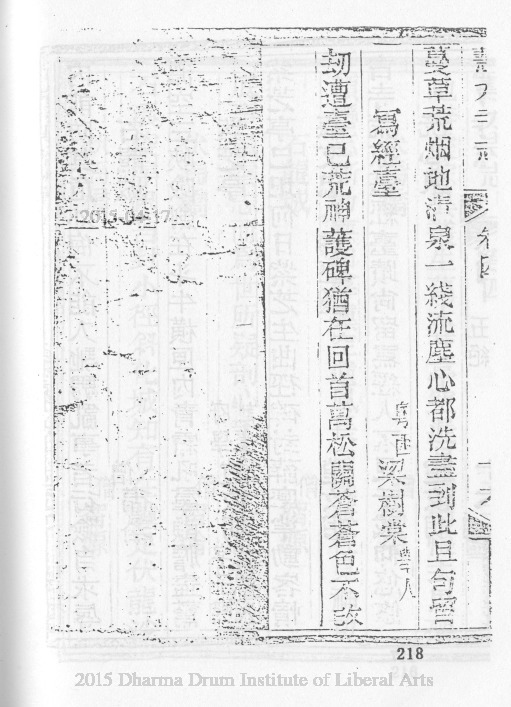 蔓草荒烟地清泉一綫流塵心都洗盡到此且句留
寫經臺
粵西梁樹棠舉人
刼遭臺已荒神護碑猶在回首萬松關蒼蒼色不改
218
2015 Dharma Drum Institute of Liberal Arts